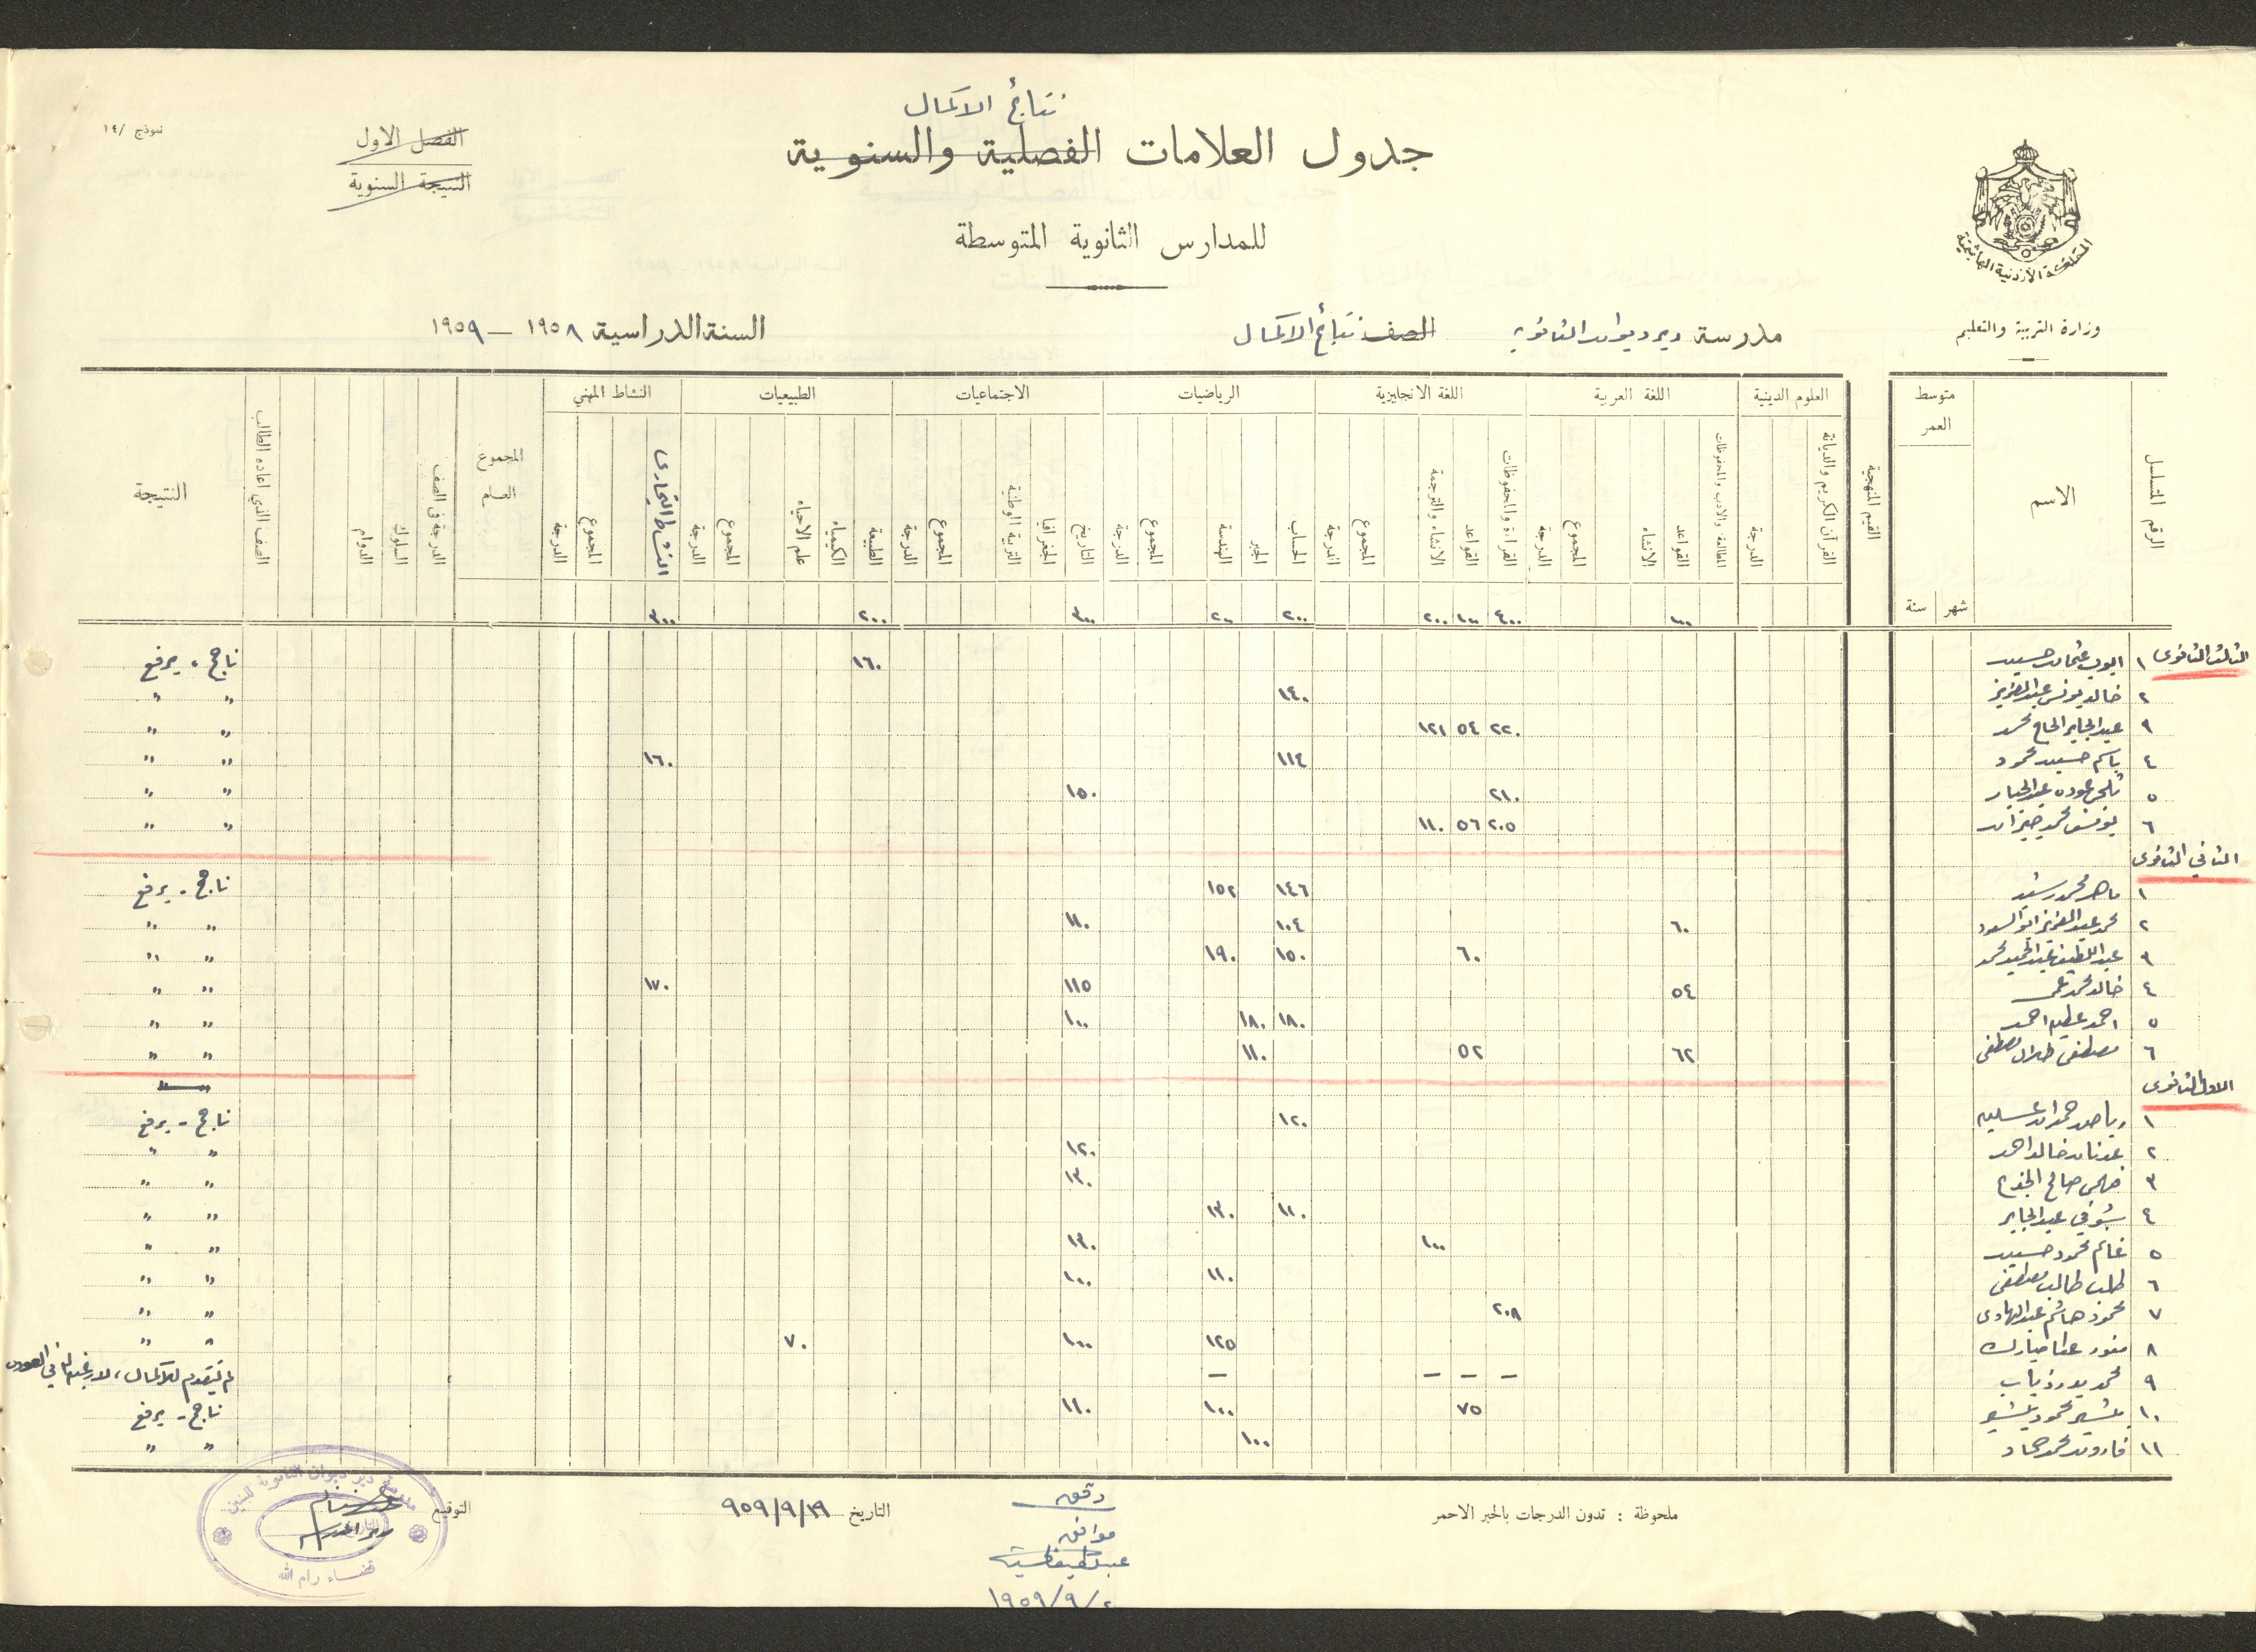 نتائج الاكمال
جدول العلامات الفصلية والسنوية
للمدارس الثانوية المتوسطة
نموذج /١٤
الفصل الاول
النتيجة السنوية
المملكة الأردنية الهاشمية
وزارة التربية والتعليم
مدرسة دير ديوان الثانوية الصف نتائج الاكمال
السنة الدراسية ١٩٥٨ – ١٩٥٩
الرقم المتسلسل الاسم متوسط العمر شهر سنة القيم المنهجية العلوم الدينية اللغة العربية اللغة الانجليزية الرياضيات الاجتماعيات الطبيعيات النشاط المهني المجموع العام الدرجة في الصف السلوك الدوام الصف الذي اعاده الطالب النتيجة
القرآن الكريم والديانة الدرجة المطالعة والادب والمحفوظات القواعد الانشاء المجموع الدرجة القراءة والمحفوظات القواعد الانشاء والترجمة المجموع الدرجة الحساب الجبر الهندسة المجموع الدرجة التاريخ الجغرافيا التربية الوطنية المجموع الدرجة الطبيعة الكيمياء علم الاحياء المجموع الدرجة النشاط التجاري المجموع الدرجة
١٠٠ ٤٠٠ ١٠٠ ٢٠٠ ٢٠٠ ٢٠٠ ٣٠٠ ٢٠٠ ٣٠٠
الثالث الثانوي
١ ايوب عثمان حسين ١٦٠ ناجح، يرفع
٢ خالد يونس عبد العزيز ١٤٠ " "
٣ عبد الجابر الحاج محمد ٢٢٠ ٥٤ ١٢١ " "
٤ باسم حسين محمود ١١٤ ١٦٠ " "
٥ عوده عبد الجبار ٢١٠ ١٥٠ " "
٦ يونس محمد ٢٠٥ ٥٦ ١١٠ " "
الثاني الثانوي
١ ماهر محمد رشيد ١٤٦ ١٥٢ ناجح - يرفع
٢ محمد عبد العزيز ابو السعود ٦٠ ١٠٤ ١١٠ " "
٣ عبد اللطيف عبد الحميد محمد ٦٠ ١٥٠ ١٩٠ " "
٤ خالد محمد ٥٤ ١١٥ ١٧٠ " "
٥ احمد احمد ١٨٠ ١٨٠ ١٠٠ " "
٦ مصطفى طلال مصطفى ٦٢ ٥٢ ١١٠ " "
الاول الثانوي
١ رياض حمدان ١٢٠ ناجح - يرفع
٢ عدنان خالد احمد ١٢٠ " "
٣ صالح ١٣٠ " "
٤ شوقي عبد الجابر ١١٠ ١٣٠ " "
٥ غانم محمود حسين ١٠٠ ١٣٠ " "
٦ طلب طالب مصطفى ١١٠ ١٠٠ " "
٧ محمود هاشم عبد الهادي ٢٠٨ " "
٨ منور عطا مبارك ١٢٥ ١٠٠ ٧٠ " "
٩ محمد بدر ذياب – – – – لم يتقدم للاكمال، لا رغبة له في العودة
١٠ بشير محمود بشير ٧٥ ١٠٠ ١١٠ ناجح - يرفع
١١ فاروق محمد حماد ١٠٠ " "
ملحوظة : تدون الدرجات بالحبر الاحمر
دقق
موافق
١٩٥٩/٩/٢
التاريخ ٩٥٩/٩/١٩
التوقيع
مدير المدرسة
مدرسة دير ديوان الثانوية للبنين
التاريخ
قضاء رام الله